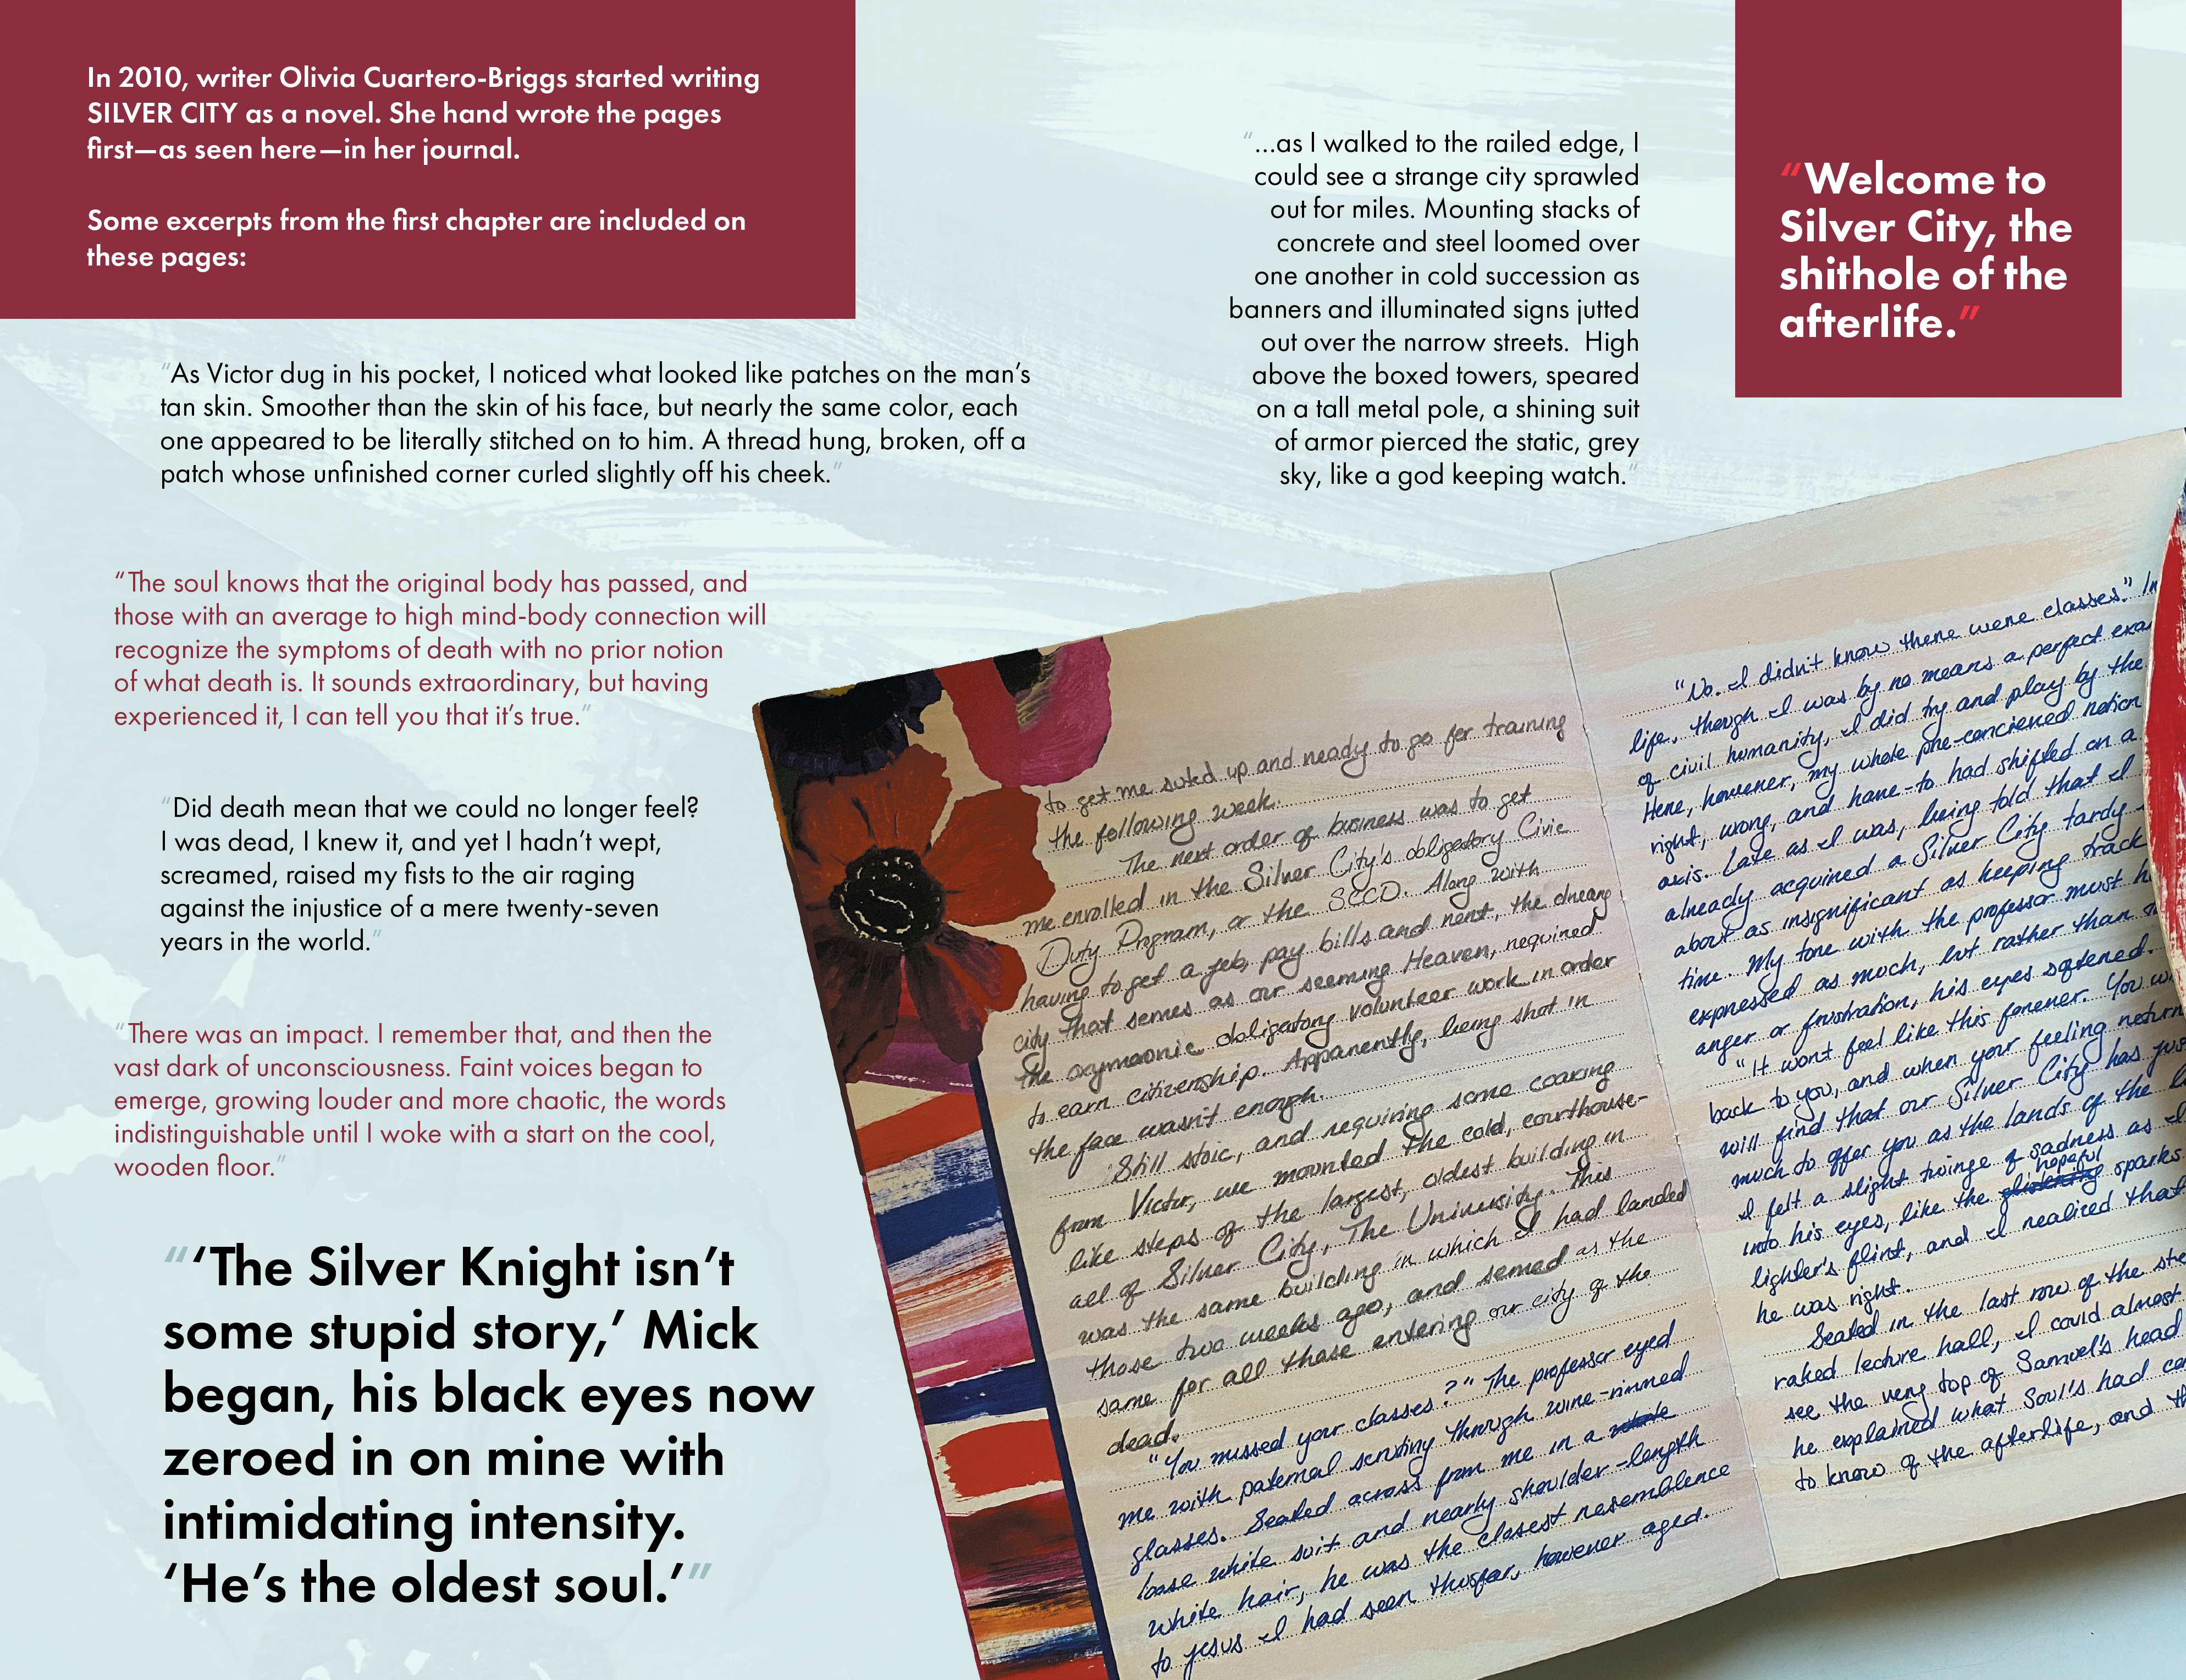 In 2010, writer Olivia Cuartero-Briggs started writing
SILVER CITY as a novel. She hand wrote the pages
first—as seen here—in her journal.
Some excerpts from the first chapter are included on
these pages:
"As Victor dug in his pocket, I noticed what looked like patches on the man's
tan skin. Smoother than the skin of his face, but nearly the same color, each
one appeared to be literally stitched on to him. A thread hung, broken, off a
patch whose unfinished corner curled slightly off his cheek."
"The soul knows that the original body has passed, and
those with an average to high mind-body connection will
recognize the symptoms of death with no prior notion
of what death is. It sounds extraordinary, but having
experienced it, I can tell you that it's true."
"Did death mean that we could no longer feel?
I was dead, I knew it, and yet I hadn't wept,
screamed, raised my fists to the air raging
against the injustice of a mere twenty-seven
years in the world."
"There was an impact. I remember that, and then the
vast dark of unconsciousness. Faint voices began to
emerge, growing louder and more chaotic, the words
indistinguishable until I woke with a start on the cool,
wooden floor."
"'The Silver Knight isn't
some stupid story,' Mick
began, his black eyes now
zeroed in on mine with
intimidating intensity.
'He's the oldest soul.'"
"...as I walked to the railed edge, I
could see a strange city sprawled
out for miles. Mounting stacks of
concrete and steel loomed over
one another in cold succession as
banners and illuminated signs jutted
out over the narrow streets.  High
above the boxed towers, speared
on a tall metal pole, a shining suit
of armor pierced the static, grey
sky, like a god keeping watch."
"Welcome to
Silver City, the
shithole of the
afterlife."
to get me suted up and ready to go for training
the following week.
The next order of business was to get
me enrolled in the Silver City's obligatory Civic
Duty Program, or the SCCD. Along with
having to get a job, pay bills and rent, the dreary
city that serves as our seeming Heaven, required
the oxymoronic obligatory volunteer work in order
to earn citizenship. Apparently, being shot in
the face wasn't enough.
Still stoic, and requiring some coaxing
from Victor, we mounted the cold, courthouse-
like steps of the largest, oldest building in
all of Silver City, The University. This
was the same building in which I had landed
those two weeks ago, and served as the
same for all those entering our city of the
dead.
"You missed your classes?" The professor eyed
me with paternal scrutiny through wire-rimmed
glasses. Seated across from me in a
loose white suit and nearly shoulder-length
white hair, he was the closest resemblence
to jesus I had seen thusfar, however aged.
"No. I didn't know there were classes." In
life, though I was by no means a perfect exa
of civil humanity, I did try and play by the
Here, however, my whole pre-concieved notion
right, wrong, and have-to had shifted on a
axis. Late as I was, being told that I
already acquired a Silver City tardy
about as insignificant as keeping track
time. My tone with the professor must h
expressed as much, but rather than
anger or frustration, his eyes softened.
"It won't feel like this forever. You w
back to you, and when your feeling return
will find that our Silver City has jus
much to offer you as the lands of the l
I felt a slight twinge of sadness as I
hopeful
into his eyes, like the sparks
lighter's flint, and I realized that
he was right.
Seated in the last row of the ste
raked lecture hall, I could almost
see the very top of Samuel's head
he explained what Soul's had co
to know of the afterlife, and th